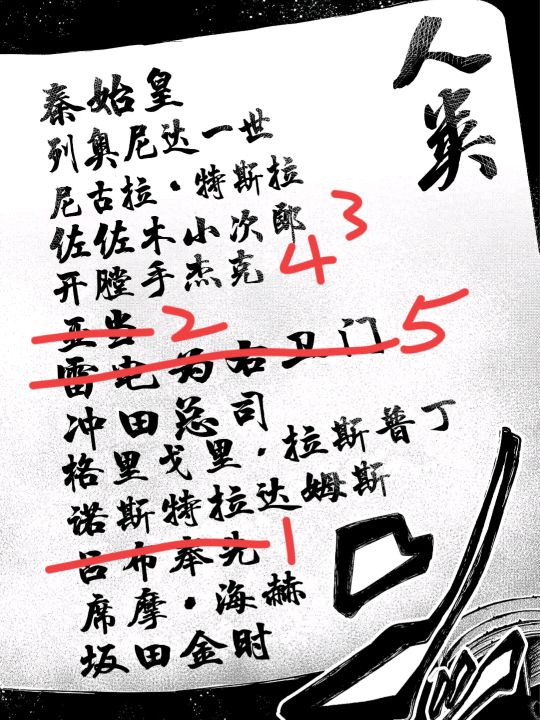 人类
秦始皇
列奥尼达一世
尼古拉·特斯拉
佐佐木小次郎 3
开膛手杰克 4
亚当 2
雷电为右卫门 5
冲田总司
格里戈里·拉斯普丁
诺斯特拉达姆斯
吕布奉先 1
席摩·海赫
坂田金时